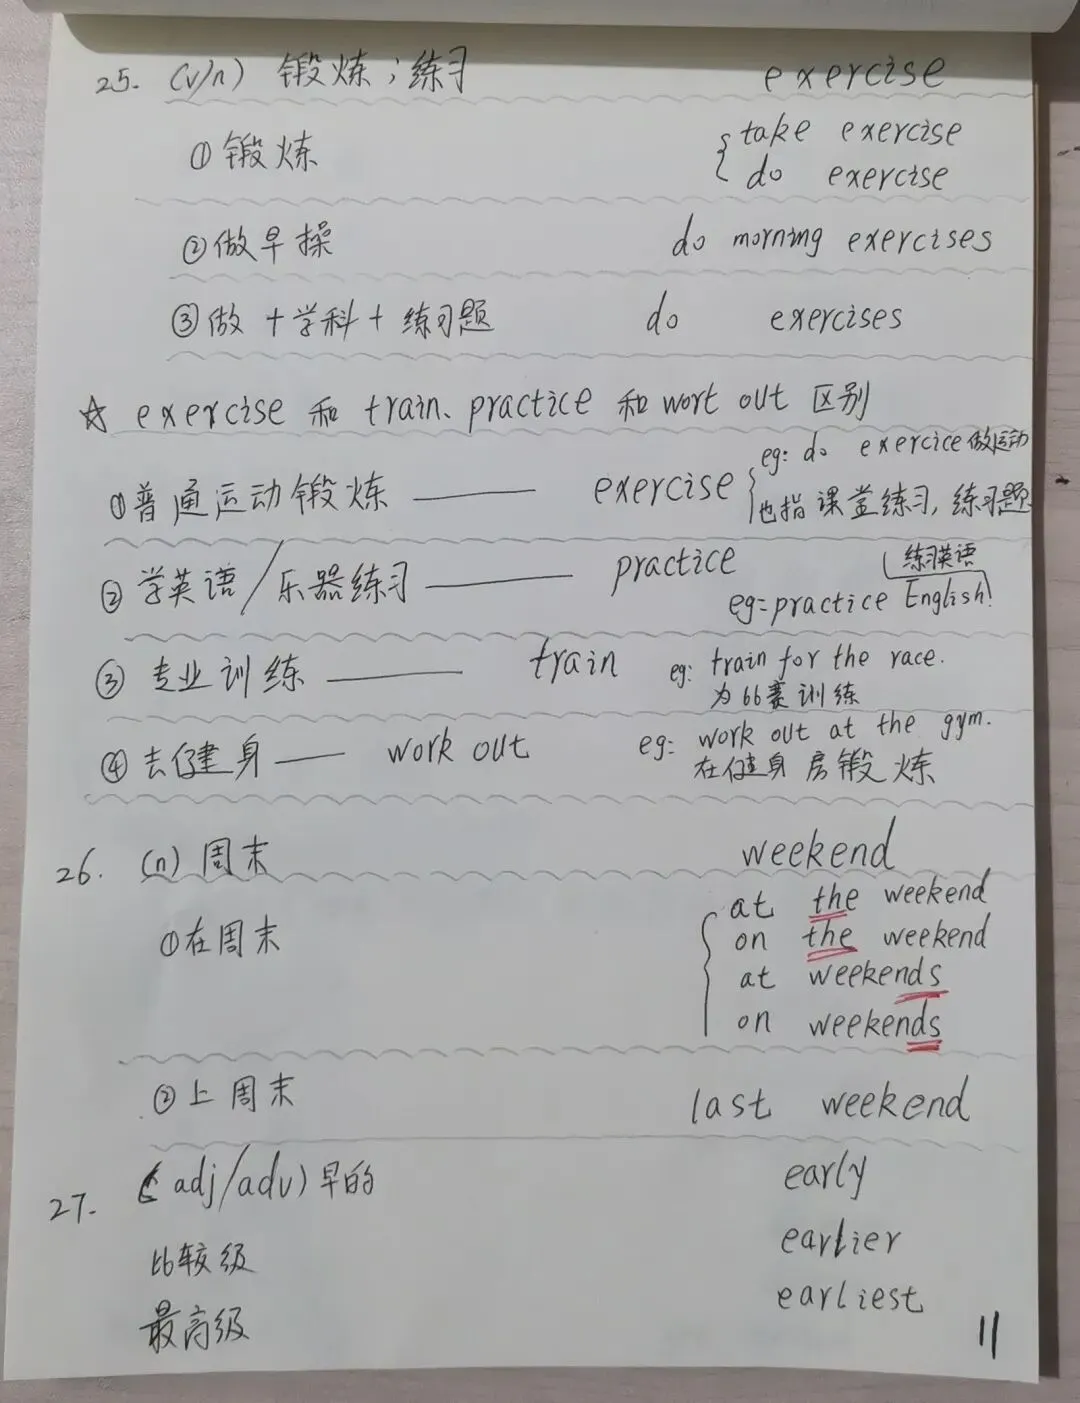 25. (v/n) 锻炼；练习 exercise
① 锻炼 { take exercise
do exercise
② 做早操 do morning exercises
③ 做 + 学科 + 练习题 do exercises
☆ exercise 和 train、practice 和 wort out 区别
① 普通运动锻炼 —— exercise { eg: do exercice 做运动
也指课堂练习, 练习题
② 学英语/乐器练习 —— practice 练习英语
eg=practice English!
③ 专业训练 —— train eg: train for the race.
为比赛训练
④ 去健身 —— work out eg: work out at the gym.
在健身房锻炼
26. (n) 周末 weekend
① 在周末 { at the weekend
on the weekend
at weekends
on weekends
② 上周末 last weekend
27. (adj/adv) 早的 early
比较级 earlier
最高级 earliest
11